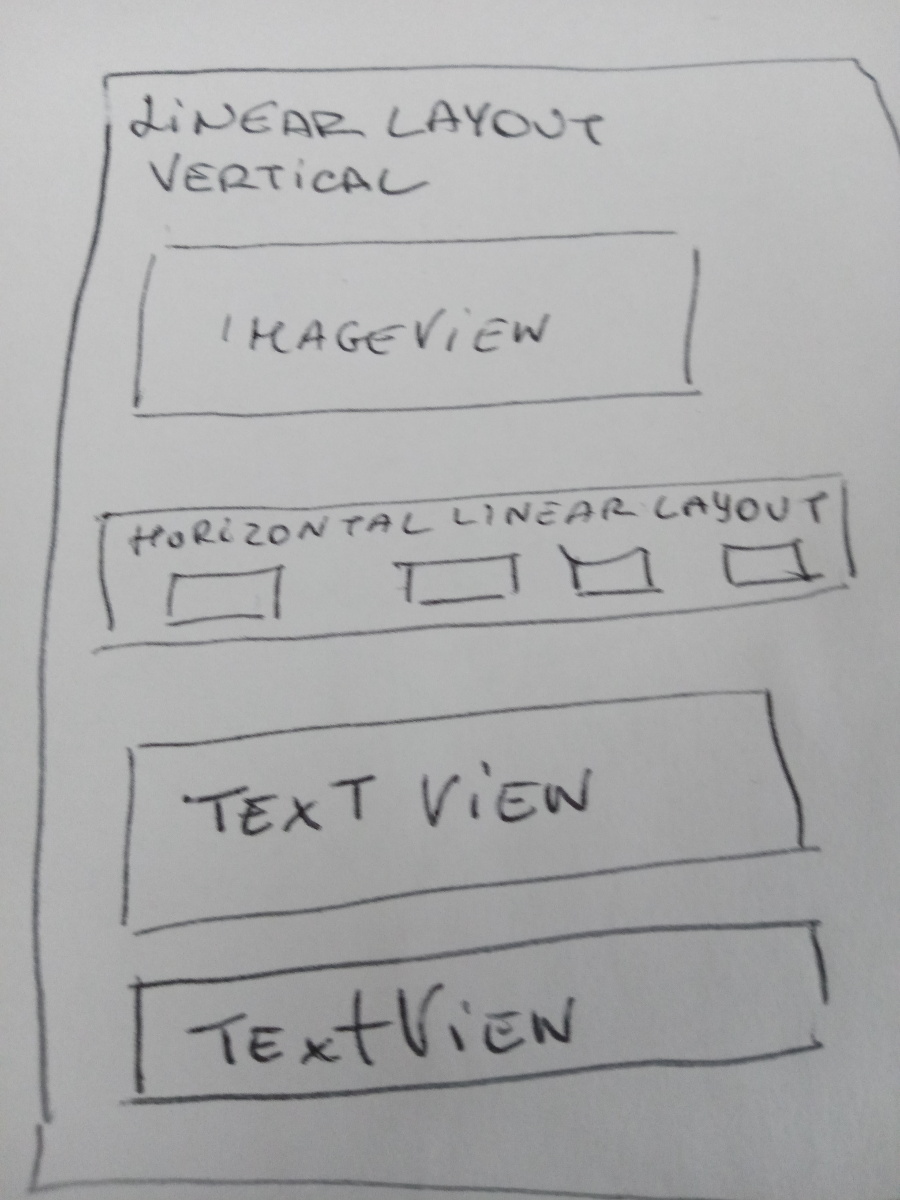 LiNEAR LAYOUT
VERTiCAL
IMAGEViEW
HORiZONTAL LiNEAR LAYOUT
TExT ViEW
TExtViEW